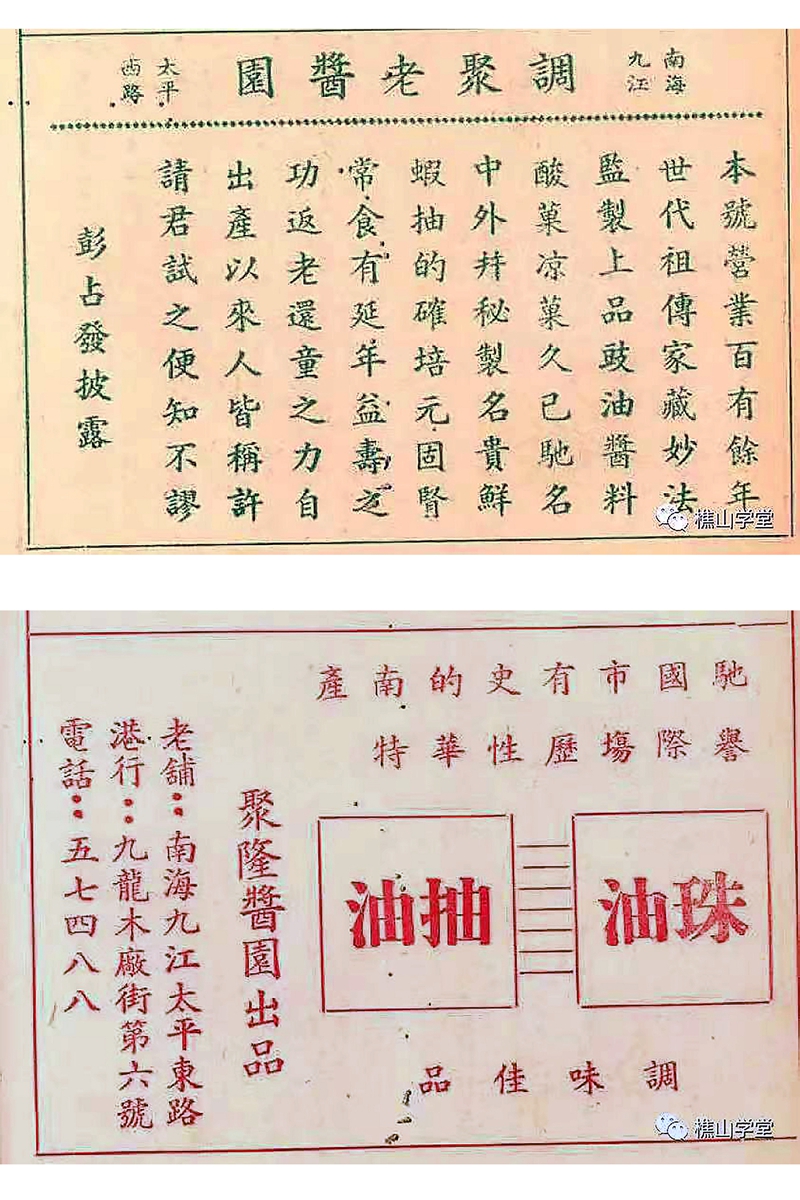 南海
九江
調聚老醬園
太平
西路
本號營業百有餘年
世代祖傳家藏妙法
監製上品豉油醬料
酸菓凉菓久已馳名
中外幷秘製名貴鮮
蝦抽的確培元固腎
常食有延年益壽之
功返老還童之力自
出產以來人皆稱許
請君試之便知不謬
彭占發披露
樵山学堂
馳譽
國際
市塲
有歷
史性
的華
南特
產
珠油
抽油
調味佳品
聚隆醬園出品
老舖：南海九江太平東路
港行：九龍木廠街第六號
電話：五七四八八
樵山学堂